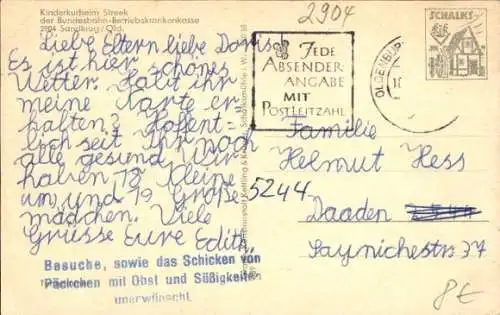 Kinderkurheim Streek
der Bundesbahn-Betriebskrankenkasse
2904 Sandkrug/Old.
2904
Liebe Eltern liebe Doris
Es ist hier schönes
Wetter. Habt ihr
meine Karte er
halten? Hoffent-
lich seit Ihr noch
alle gesund. Wir
haben 78 kleine
um und 19 große
mädchen. Viele
Grüsse Eure Edith.
Besuche, sowie das Schicken von
Päckchen mit Obst und Süßigkeiten
unerwünscht.
JEDE
ABSENDER-
ANGABE
MIT
POSTLEITZAHL
OLDENBURG
SCHALKS
Familie
Helmut Hess
5244
Daaden
Saynichestr. 37
8€